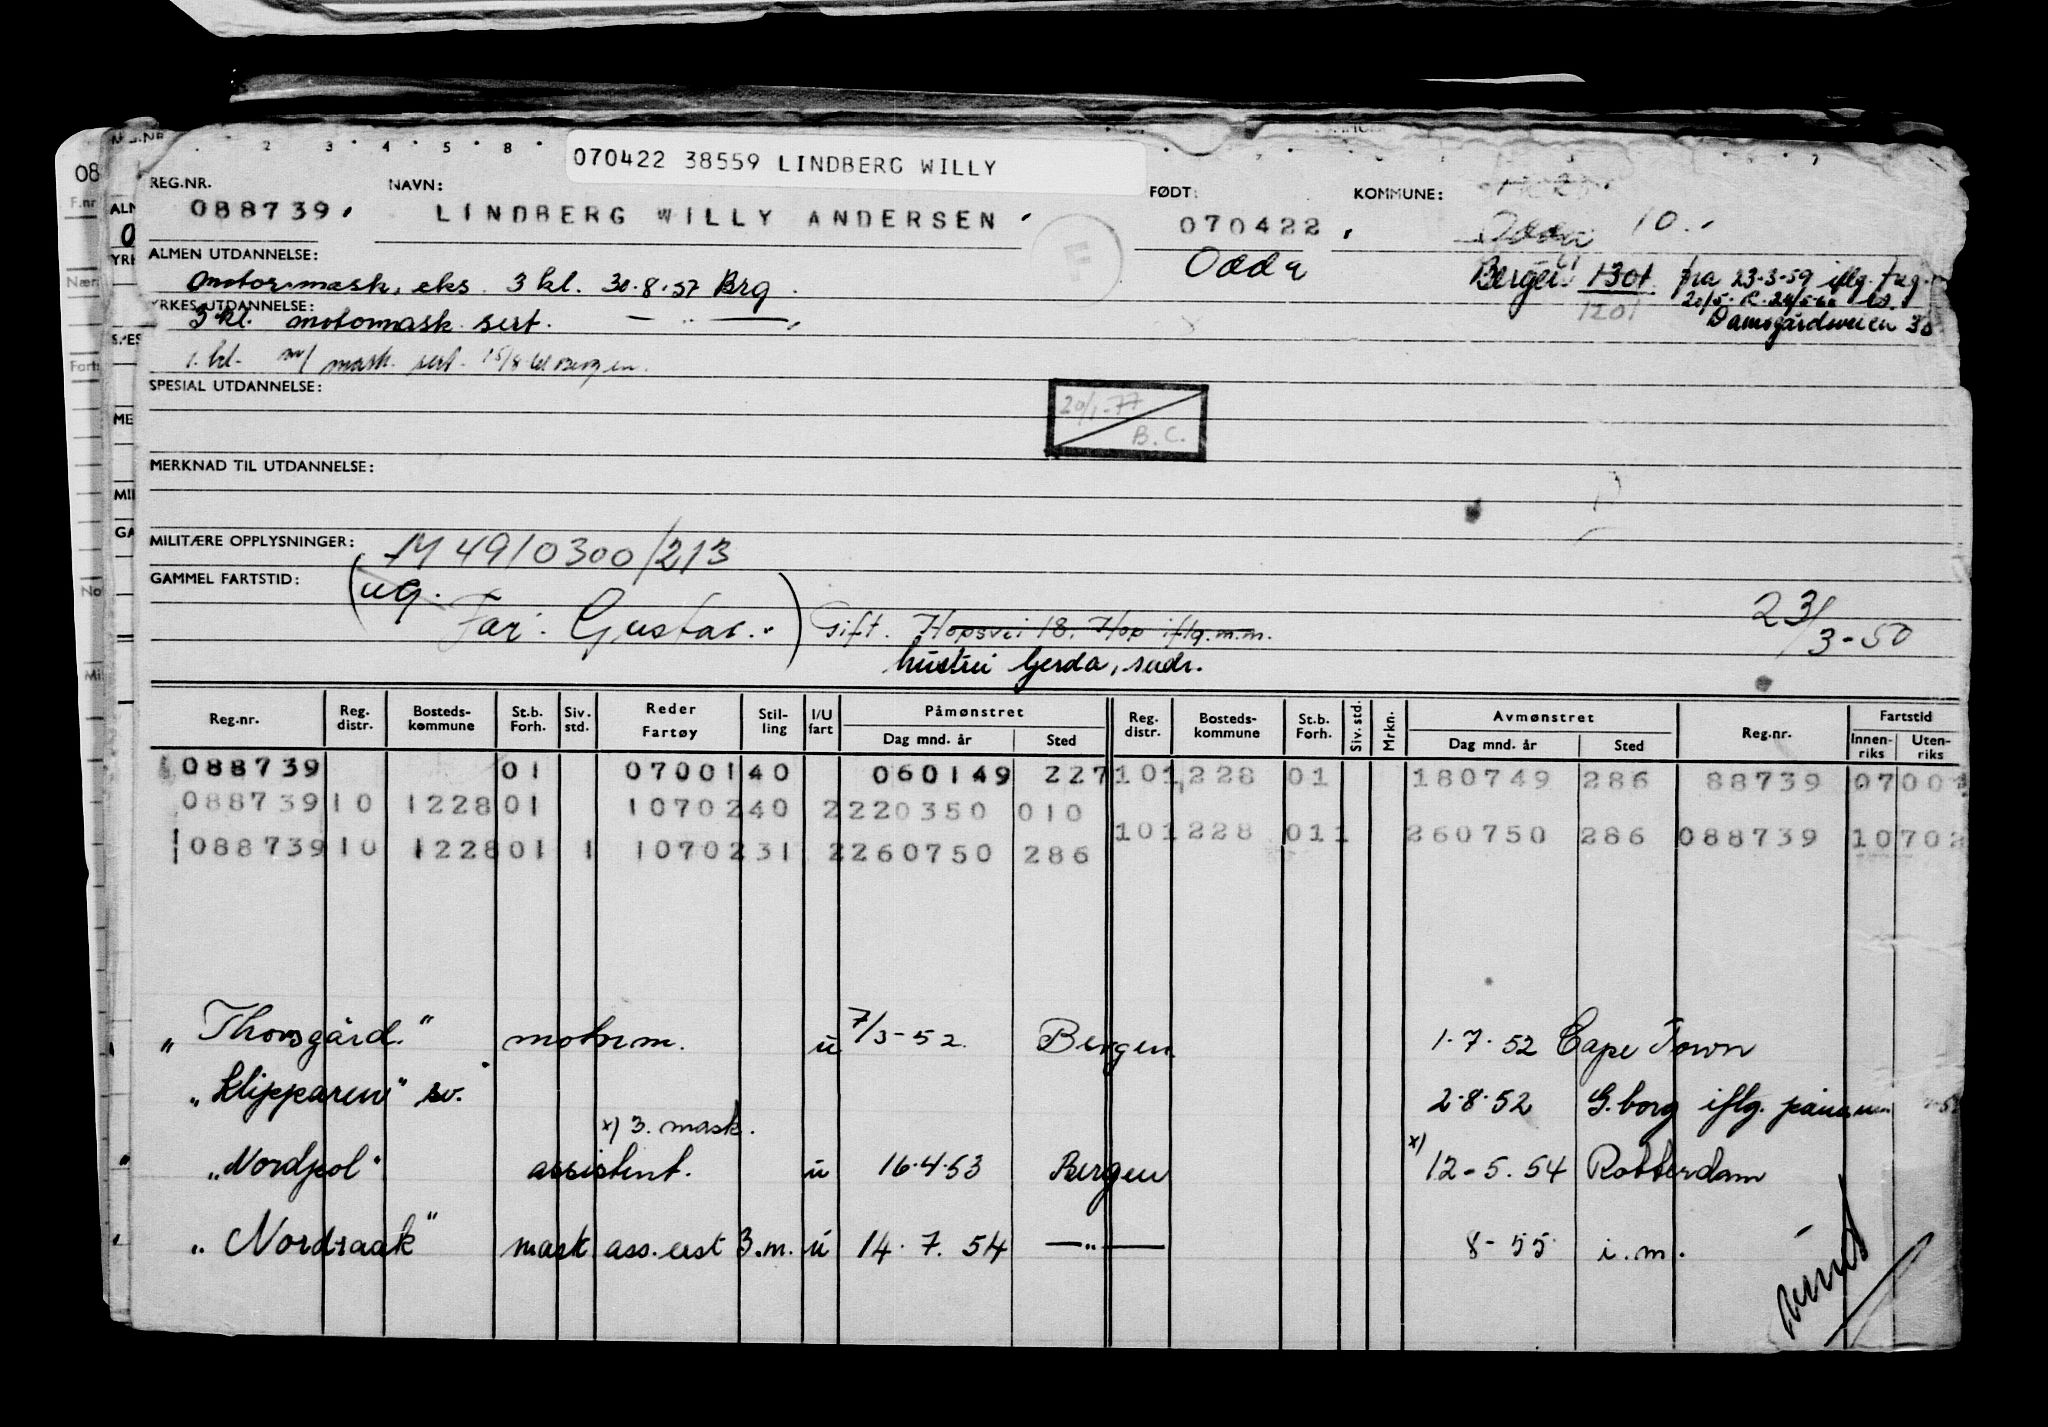 070422 38559 LINDBERG WILLY
REG.NR. NAVN: FØDT: KOMMUNE:
088739. LINDBERG WILLY ANDERSEN 070422. Odda 10.
F
Odda Bergen 1301 fra 23-3-59 iflg.
1201
Damsgårdsveien 30
ALMEN UTDANNELSE:
motormask. eks. 3 kl. 30.8.57 Brg.
YRKES UTDANNELSE:
3 kl. motormask. sert. — " —
1. kl. m/ mask. sert. 15/8 Bergen.
SPESIAL UTDANNELSE:
20/1-77
B.C.
MERKNAD TIL UTDANNELSE:
MILITÆRE OPPLYSNINGER: M 49/0300/213
GAMMEL FARTSTID: (ug.
Far: Gustav.) Gift. Hopsvei 18. Hop iflg. m.m. 23/3-50
hustru Gerda, sadr.
Reg.nr. Reg. distr. Bosteds-kommune St.b. Forh. Siv. std. Reder Fartøy Stil-ling I/U fart Påmønstret Dag mnd. år Sted Reg. distr. Bosteds-kommune St.b. Forh. Siv. std. Mrkn. Avmønstret Dag mnd. år Sted Reg.nr. Fartstid Innen-riks Uten-riks
088739 01 07001 40 060149 227 10 1228 01 180749 286 88739 07 001
088739 10 1228 01 10702 40 2 220350 010
10 1228 01 1 260750 286 088739 10 702
088739 10 1228 01 1 10702 31 2 260750 286
"Thorsgård." motorm. u 7/3-52 Bergen 1.7.52 Cape Town
"Klipparen" sv. 2.8.52 G.borg iflg.
x) 3. mask.
"Nordpol" assistent. u 16.4.53 Bergen x) 12-5.54 Rotterdam
"Nordraak" mask ass. erst 3.m. u 14.7.54 — " — 8-55 i.m.
vend